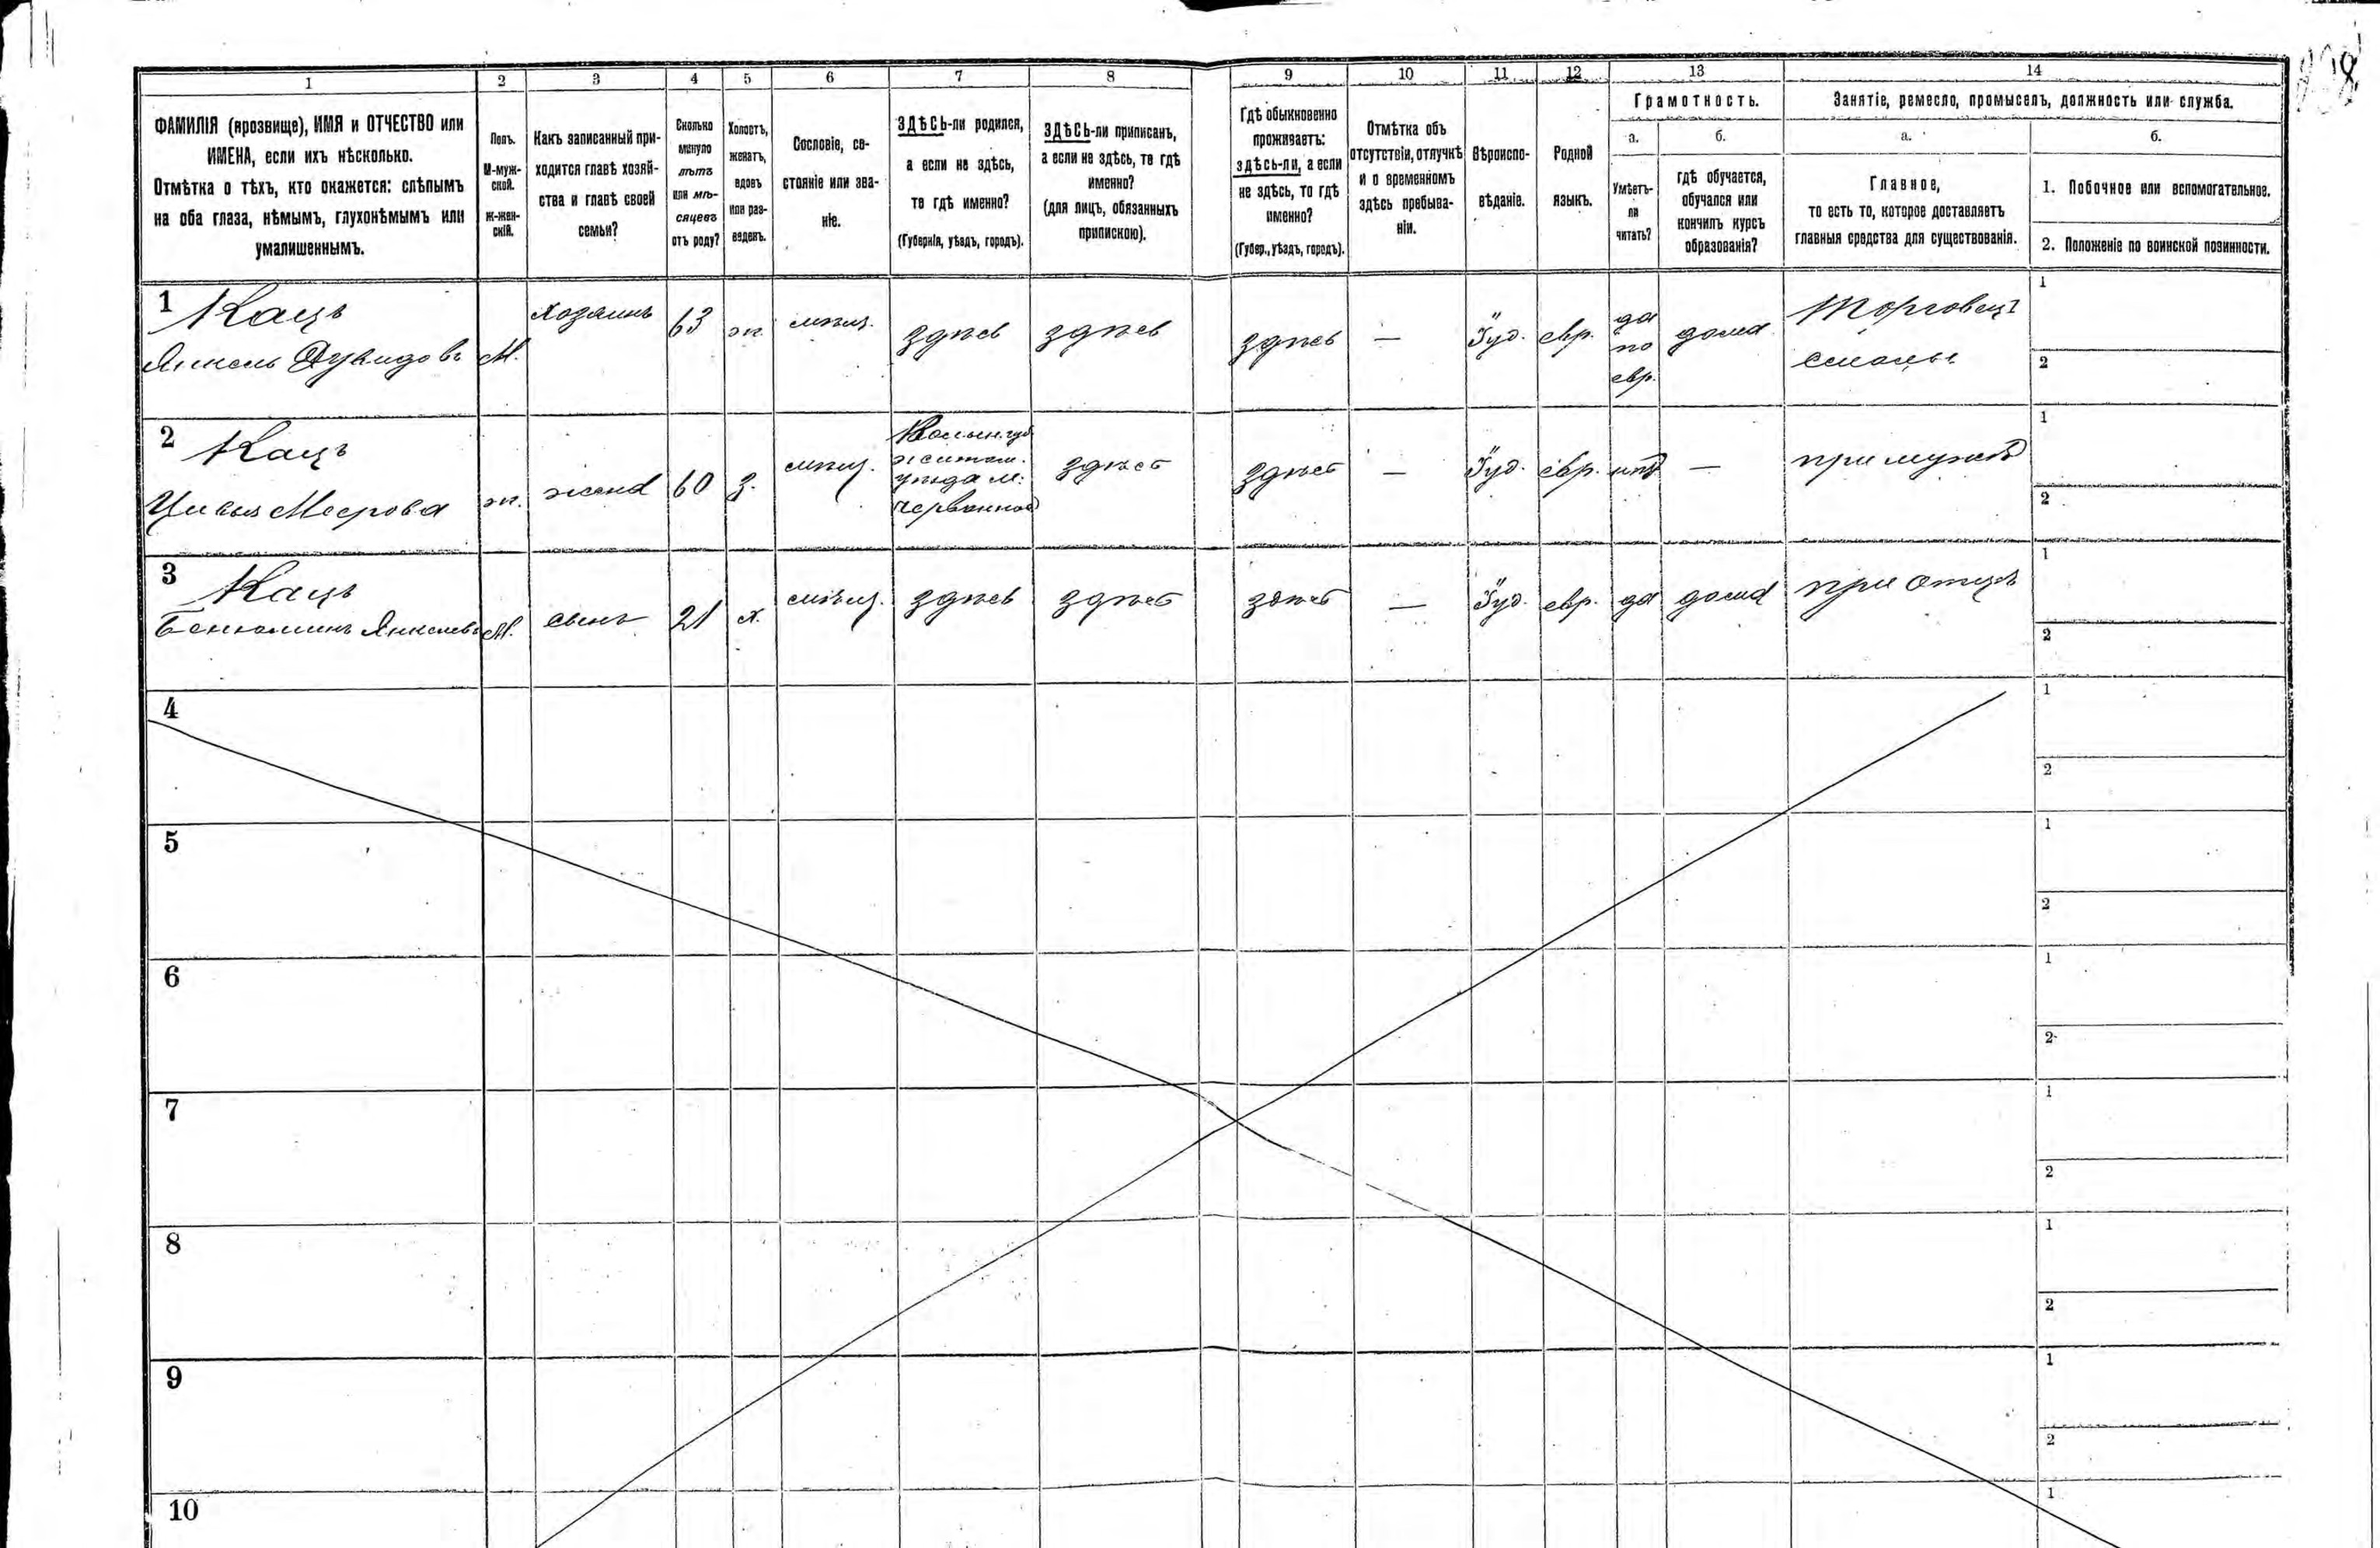 1 2 3 4 5 6 7 8 9 10 11 12 13 14
ФАМИЛІЯ (прозвище), ИМЯ и ОТЧЕСТВО или
ИМЕНА, если ихъ нѣсколько.
Отмѣтка о тѣхъ, кто окажется: слѣпымъ
на оба глаза, нѣмымъ, глухонѣмымъ или
умалишеннымъ.
Полъ.
М-муж-
ской.
Ж-жен-
скій.
Какъ записанный при-
ходится главѣ хозяй-
ства и главѣ своей
семьи?
Сколько
минуло
лѣтъ
или мѣ-
сяцевъ
отъ роду?
Холостъ,
женатъ,
вдовъ
или раз-
веденъ.
Сословіе, со-
стояніе или зва-
ніе.
ЗДѢСЬ-ли родился,
а если не здѣсь,
то гдѣ именно?
(Губернія, уѣздъ, городъ).
ЗДѢСЬ-ли приписанъ,
а если не здѣсь, то гдѣ
именно?
(для лицъ, обязанныхъ
припискою).
Гдѣ обыкновенно
проживаетъ:
здѣсь-ли, а если
не здѣсь, то гдѣ
именно?
(Губер., уѣздъ, городъ).
Отмѣтка объ
отсутствіи, отлучкѣ
и о временномъ
здѣсь пребыва-
ніи.
Вѣроиспо-
вѣданіе.
Родной
языкъ.
Грамотность.
а.
Умѣетъ-
ли
читать?
б.
гдѣ обучается,
обучался или
кончилъ курсъ
образованія?
Занятіе, ремесло, промыселъ, должность или служба.
а.
Главное,
то есть то, которое доставляетъ
главныя средства для существованія.
б.
1. Побочное или вспомогательное.
2. Положеніе по воинской повинности.
1 Кацъ
Янкель Дувидовъ
М.
хозяинъ
63
ж.
мѣщ.
здѣсь
здѣсь
здѣсь
—
Іуд.
евр.
да
по
евр.
дома
Торговецъ
смолы
1
2
2 Кацъ
Цивья Меерова
ж.
жена
60
з.
мѣщ.
Волын. губ
житом.
уѣзда м:
Червонное
здѣсь
здѣсь
—
Іуд.
евр.
нѣтъ
—
при мужѣ
1
2
3 Кацъ
Бенюминъ Янкелевъ
М.
сынъ
21
х.
мѣщ.
здѣсь
здѣсь
здѣсь
—
Іуд.
евр.
да
дома
при отцѣ
1
2
4
1
2
5
1
2
6
1
2
7
1
2
8
1
2
9
1
2
10
1